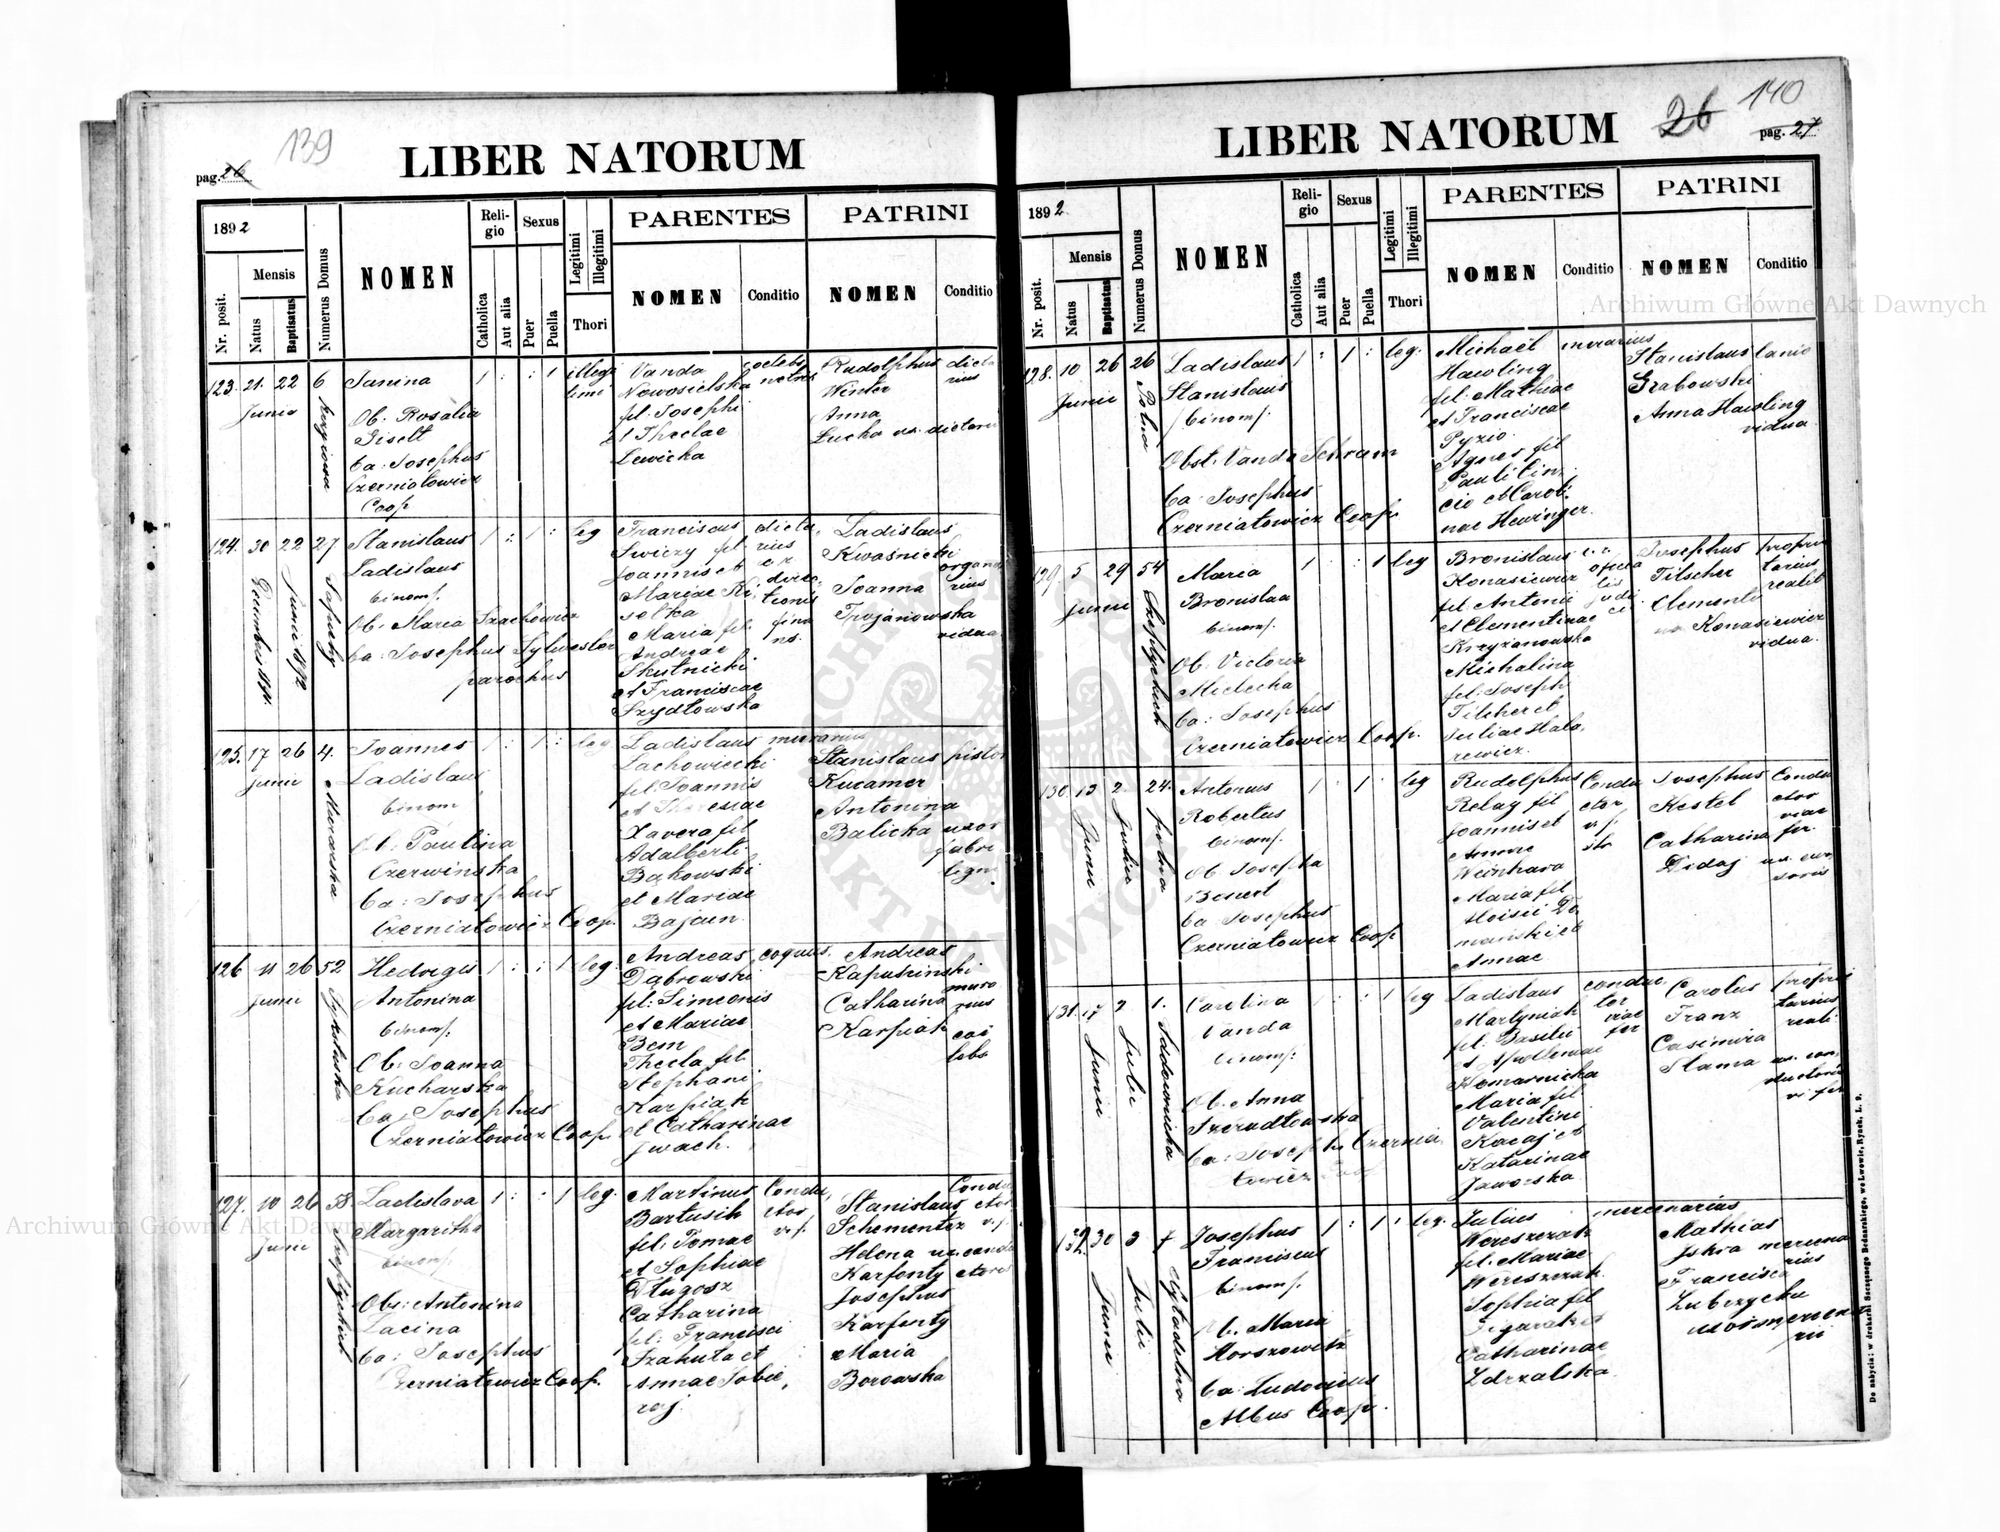 139
pag. 26
LIBER NATORUM
1892
Nr. posit.
Mensis
Natus
Baptisatus
Numerus Domus
NOMEN
Religio
Catholica
Aut alia
Sexus
Puer
Puella
Legitimi
Illegitimi
Thori
PARENTES
NOMEN
Conditio
PATRINI
NOMEN
Conditio
123. 21. 22 6
Junii
Janina
Ob. Rosalia
Giselt
Ba: Josephus
Czerniatowicz
Coop
1 : : 1 illegi
timi
Vanda
Nowosielska
fil: Josephi
et Theclae
Lewicka
Rudolphus
Winter
Anna
Lucka ux. dietarii
124. 30 22 27
Decembris 1891.
Junii 1892
Sapiehy
Stanislaus
Ladislaus
binom.
Ob. Maria Szachowicz
Ba: Josephus Sylwester
parochus
1 : 1 : leg
Franciscus
Swiczy fil.
Joannis et
Mariae
Maria fil.
Andreae
Skutnicki
et Franciscae
Szydłowska
Ladislaus
Kwasnicki
Joanna
Trojanowska
vidua
125. 17 26 4.
Junii
Murarska
Joannes
Ladislaus
binom
Ob: Paulina
Czerwinska
Ba: Josephus
Czerniatowicz Coop.
1 : 1 : leg
Ladislaus murarius
Lachowiecki
fil: Joannis
et Theresiae
Xavera fil
Adalberti
Bąkowski
et Mariae
Bajan.
Stanislaus pistor
Kucamer
Antonina
Balicka uxor
fabri
lign.
126 11 26 52
Junii
Sykstuska
Hedvigis
Antonina
binom.
Ob: Joanna
Kucharska
Ba: Josephus
Czerniatowicz Coop.
1 : : 1 leg.
Andreas coquus.
Dąbrowski
fil: Simeonis
et Mariae
Bem
Thecla fil
Stephani
Karpiak
et Catharinae
Jwach.
Andreas
Kapuscinski
Catharina
Karpiak
127. 10 26 58.
Junii
Ladislava
Margaritha
binom.
Obs: Antonina
Lacina
Ba: Josephus
Czerniatowicz Coop.
1 : : 1 leg.
Martinus
Bartusik
fil: Tomae
et Sophiae
Długosz
Catharina
fil: Francisci
Szakuta et
Annae Sobie,
raj.
Condu,
ctor
v.f.
Stanislaus
Schementer
Helena ux. condu
Karfonty ctoris
Josephus
Karfonty
Maria
Borowska
26 140
pag. 27
LIBER NATORUM
1892
Nr. posit.
Mensis
Natus
Baptisatus
Numerus Domus
NOMEN
Religio
Catholica
Aut alia
Sexus
Puer
Puella
Legitimi
Illegitimi
Thori
PARENTES
NOMEN
Conditio
PATRINI
NOMEN
Conditio
128. 10 26 26
Junii
Polna
Ladislaus
Stanislaus
binom.
Obst. Vanda Schram
Ba: Josephus
Czerniatowicz Coop.
1 : 1 : leg.
Michael murarius
Hawling
fil: Mathiae
et Franciscae
Pyzio.
Agnes fil
Pauli
et Caroli
nae Hewinger.
Stanislaus lanio
Grabowski
Anna Hawling
vidua
129. 5 29 54
Junii
Maria
Bronislaa
binom.
Ob: Victoria
Mielecka
Ba: Josephus
Czerniatowicz Coop.
1 : : 1 leg
Bronislaus
Konasiewicz
fil: Antonii
et Clementinae
Krzyżanowska
Michalina
fil: Joseph
Tilscher et
Juliae Hala,
rewicz.
Josephus
Titscher
Clementi
na Konasiewicz
vidua.
130. 13 2. 24.
Junii
Julii
polna
Antonius
Robertus
binom.
Ob: Josepha
Ba Josephus
Czerniatowicz Coop
1 : 1 : leg
Rudolphus
Relay fil
Joannis et
Annae
Weinhara
Maria fil
Moisii Do
manskich
Annae
Josephus
Kestel
Catharina
Didaj
131. 17 2 1.
Junii
Julii
Carolina
Vanda
binom.
Ob. Anna
Szczudłowska
Ba: Joseph. Czernia,
towicz Coop
1 : : 1 leg
Ladislaus
Martyniak
fil: Basilii
et Apolloniae
Komarnicka
Maria fil.
Valentini
Kacaj et
Katarinae
Jaworska
Carolus
Franz
Casimira
Slama
132. 30 3 7
Junii
Julii
Cytadelna
Josephus
Franciscus
binom.
Ob. Maria
Horszowitz
Ba: Ludovicus
Albus Coop.
1 : 1 : leg.
Julius mercenarius
Wereszczak
fil: Mariae
Wereszczak
Sophia fil
Catharinae
Zdrzalska.
Mathias
Iskra mercena
rius
Francisca
Zubrzycka
uxor mercena
rii
Do nabycia: w drukarni Szczęsnego Bednarskiego, we Lwowie, Rynek, L. 9.
Archiwum Główne Akt Dawnych
Archiwum Główne Akt Dawnych